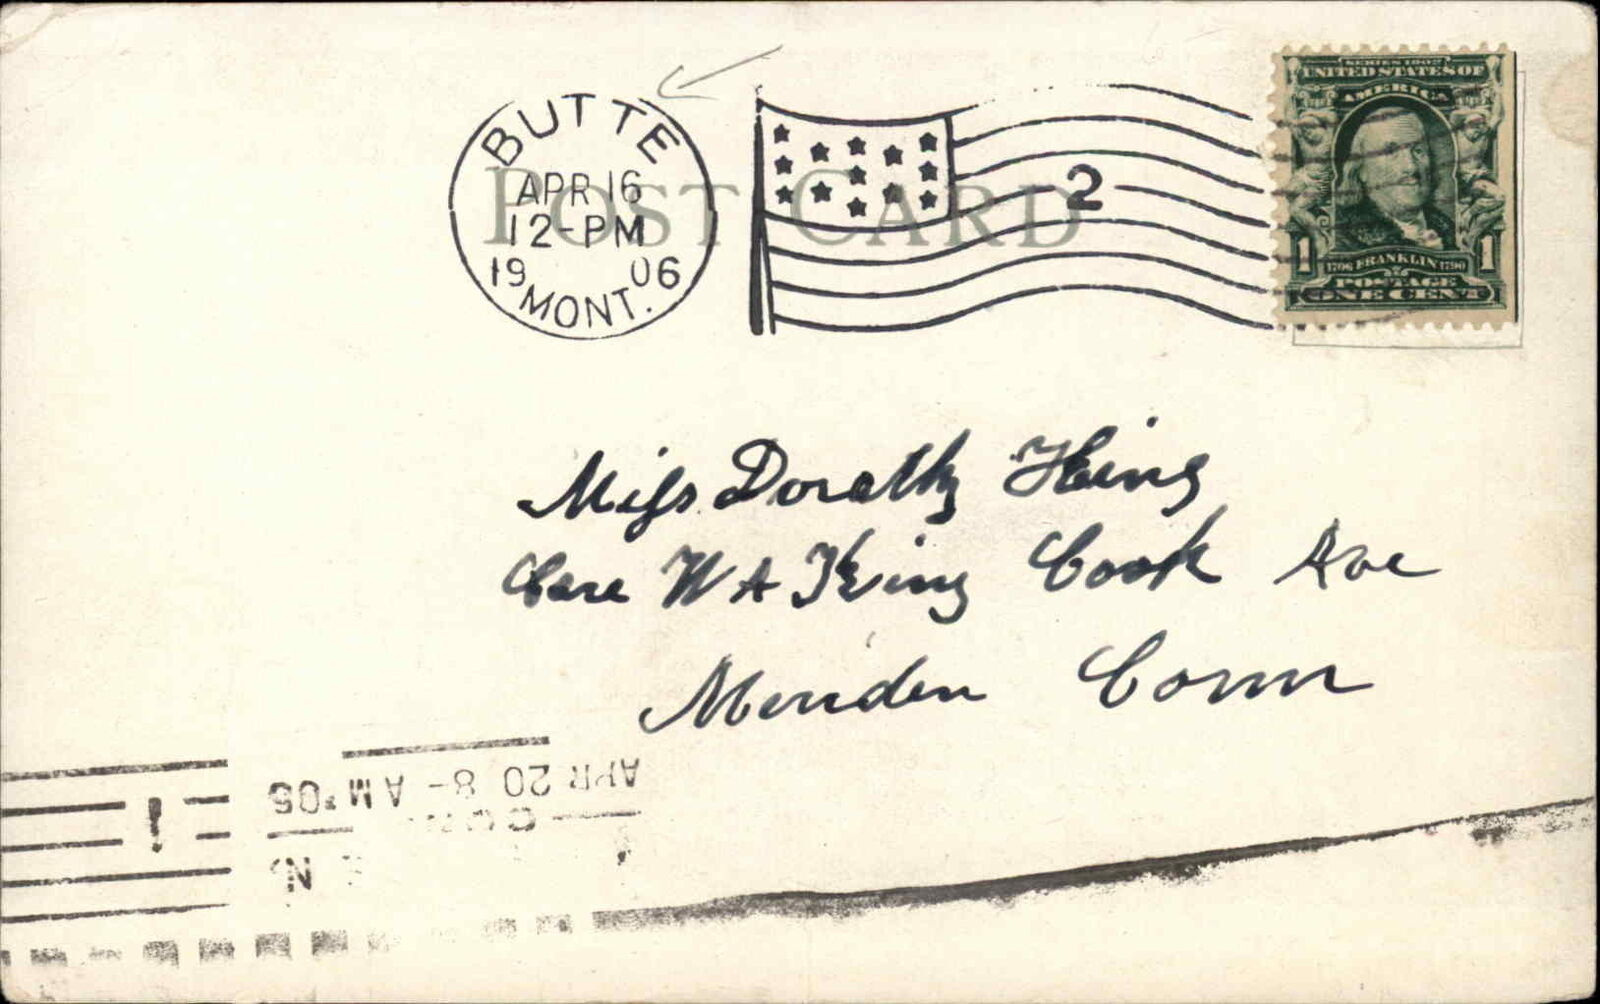 BUTTE
APR 16
12-PM
19 06
MONT.
2
POST CARD
SERIES 1902
UNITED STATES OF
AMERICA
1 1706 FRANKLIN 1790 1
POSTAGE
ONE CENT
Miss Dorothy King
Care W A King Cook Ave
Meriden Conn
1
APR 20 8-AM '05
N